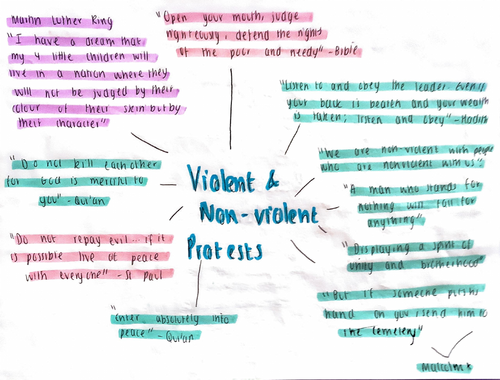 Martin Luther King
"I have a dream that
my 4 little children will
live in a nation where they
will not be judged by their
colour of their skin but by
their character"
"Open your mouth, judge
righteously, defend the rights
of the poor and needy" - Bible
"Listen to and obey the leader even if
your back is beaten and your wealth
is taken; listen and obey" - Hadith
"Do not kill each other
for God is merciful to
you" - Qur'an
Violent &
Non-violent
Protests
"We are non-violent with people
who are nonviolent with us"
"A man who stands for
nothing will fall for
anything"
"Do not repay evil... if it
is possible live at peace
with everyone" - St Paul
"Displaying a spirit of
unity and brotherhood"
"But if someone puts his
hand on you send him to
the cemetery"
"enter absolutely into
peace" - Qur'an
Malcolm X